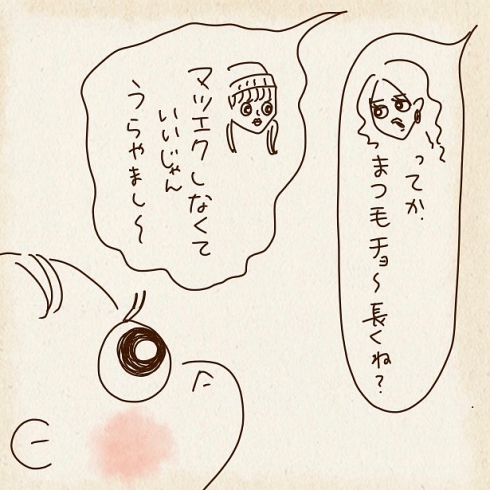 ってか
まつ毛チョ〜長くね?
マツエクしなくて
いいじゃん
うらやまし〜